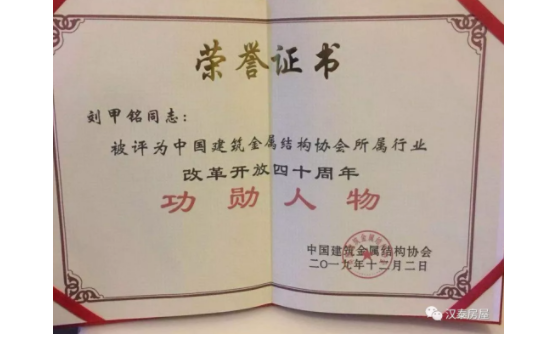 荣誉证书
刘甲铭同志：
被评为中国建筑金属结构协会所属行业
改革开放四十周年
功勋人物
中国建筑金属结构协会
二〇一九年十二月二日
汉泰房屋